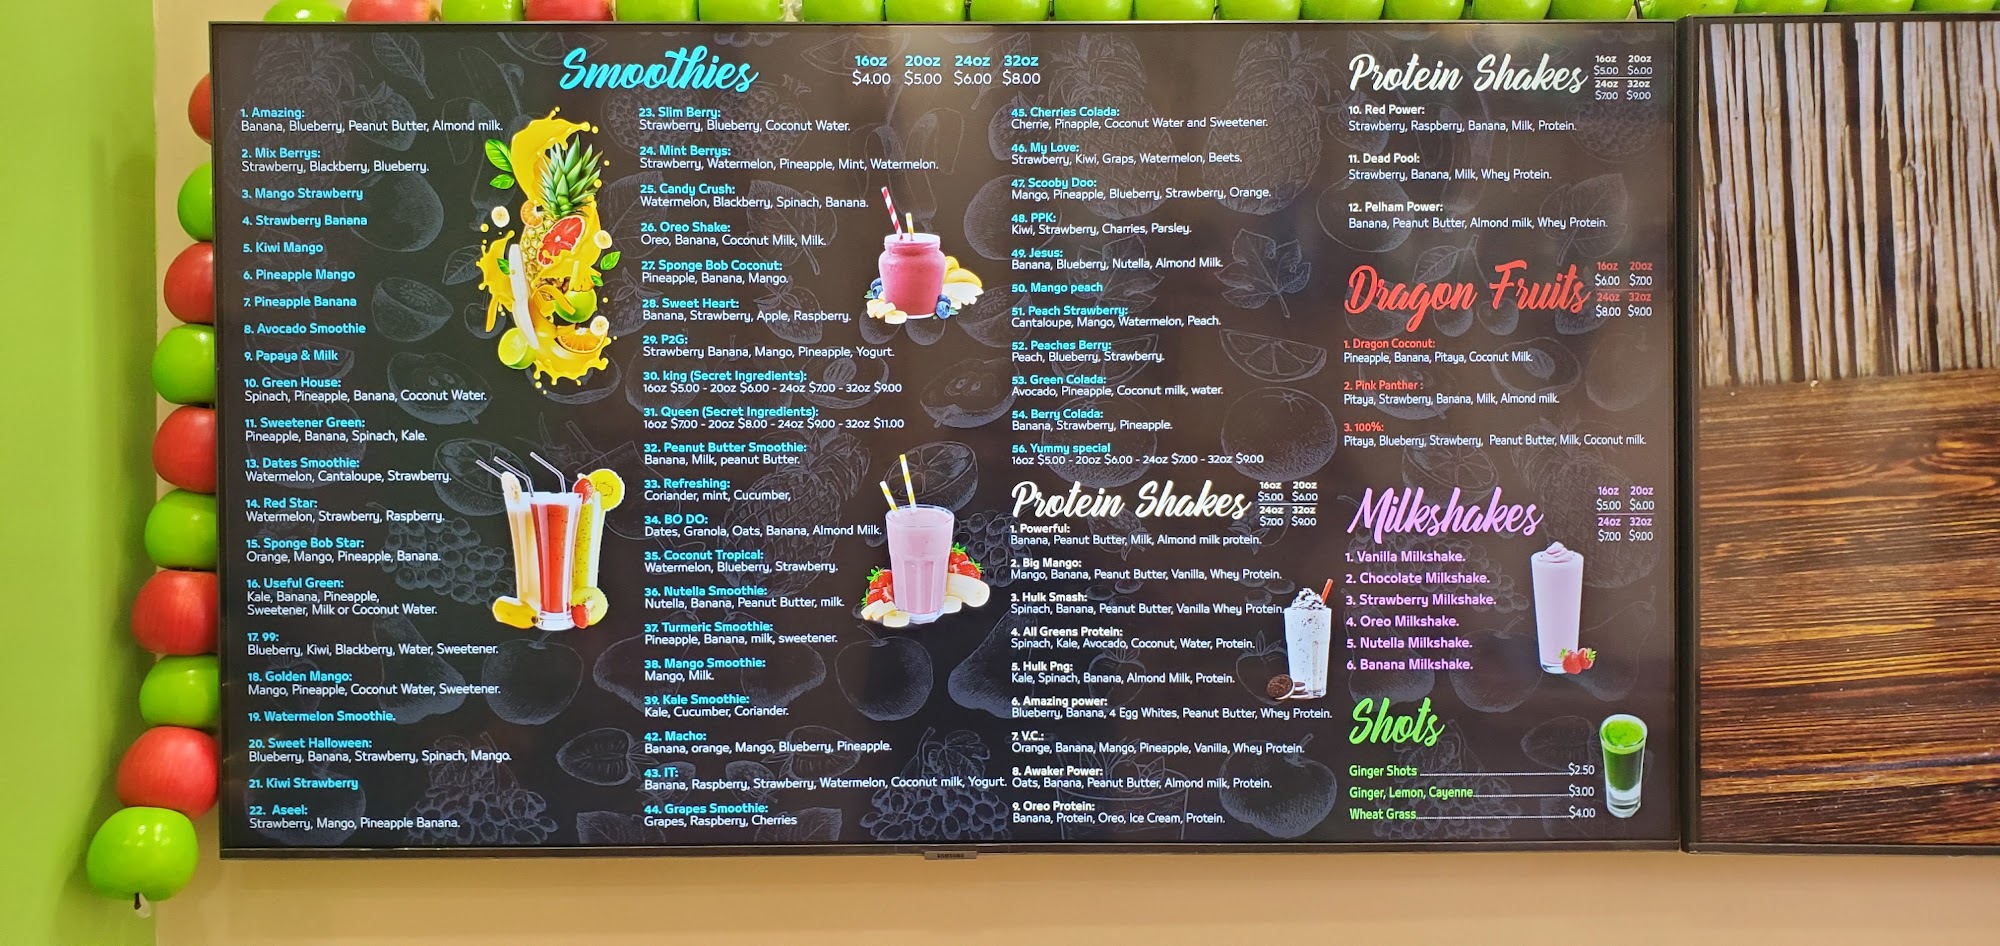 Smoothies
16oz 20oz 24oz 32oz
$4.00 $5.00 $6.00 $8.00
1. Amazing:
Banana, Blueberry, Peanut Butter, Almond milk.
2. Mix Berrys:
Strawberry, Blackberry, Blueberry.
3. Mango Strawberry
4. Strawberry Banana
5. Kiwi Mango
6. Pineapple Mango
7. Pineapple Banana
8. Avocado Smoothie
9. Papaya & Milk
10. Green House:
Spinach, Pineapple, Banana, Coconut Water.
11. Sweetener Green:
Pineapple, Banana, Spinach, Kale.
13. Dates Smoothie:
Watermelon, Cantaloupe, Strawberry.
14. Red Star:
Watermelon, Strawberry, Raspberry.
15. Sponge Bob Star:
Orange, Mango, Pineapple, Banana.
16. Useful Green:
Kale, Banana, Pineapple,
Sweetener, Milk or Coconut Water.
17. 99:
Blueberry, Kiwi, Blackberry, Water, Sweetener.
18. Golden Mango:
Mango, Pineapple, Coconut Water, Sweetener.
19. Watermelon Smoothie.
20. Sweet Halloween:
Blueberry, Banana, Strawberry, Spinach, Mango.
21. Kiwi Strawberry
22. Aseel:
Strawberry, Mango, Pineapple Banana.
23. Slim Berry:
Strawberry, Blueberry, Coconut Water.
24. Mint Berrys:
Strawberry, Watermelon, Pineapple, Mint, Watermelon.
25. Candy Crush:
Watermelon, Blackberry, Spinach, Banana.
26. Oreo Shake:
Oreo, Banana, Coconut Milk, Milk.
27. Sponge Bob Coconut:
Pineapple, Banana, Mango.
28. Sweet Heart:
Banana, Strawberry, Apple, Raspberry.
29. P2G:
Strawberry Banana, Mango, Pineapple, Yogurt.
30. king (Secret Ingredients):
16oz $5.00 - 20oz $6.00 - 24oz $7.00 - 32oz $9.00
31. Queen (Secret Ingredients):
16oz $7.00 - 20oz $8.00 - 24oz $9.00 - 32oz $11.00
32. Peanut Butter Smoothie:
Banana, Milk, peanut Butter.
33. Refreshing:
Coriander, mint, Cucumber,
34. BO DO:
Dates, Granola, Oats, Banana, Almond Milk.
35. Coconut Tropical:
Watermelon, Blueberry, Strawberry.
36. Nutella Smoothie:
Nutella, Banana, Peanut Butter, milk.
37. Turmeric Smoothie:
Pineapple, Banana, milk, sweetener.
38. Mango Smoothie:
Mango, Milk.
39. Kale Smoothie:
Kale, Cucumber, Coriander.
42. Macho:
Banana, orange, Mango, Blueberry, Pineapple.
43. IT:
Banana, Raspberry, Strawberry, Watermelon, Coconut milk, Yogurt.
44. Grapes Smoothie:
Grapes, Raspberry, Cherries
45. Cherries Colada:
Cherrie, Pinapple, Coconut Water and Sweetener.
46. My Love:
Strawberry, Kiwi, Graps, Watermelon, Beets.
47. Scooby Doo:
Mango, Pineapple, Blueberry, Strawberry, Orange.
48. PPK:
Kiwi, Strawberry, Charries, Parsley.
49. Jesus:
Banana, Blueberry, Nutella, Almond Milk.
50. Mango peach
51. Peach Strawberry:
Cantaloupe, Mango, Watermelon, Peach.
52. Peaches Berry:
Peach, Blueberry, Strawberry.
53. Green Colada:
Avocado, Pineapple, Coconut milk, water.
54. Berry Colada:
Banana, Strawberry, Pineapple.
56. Yummy special
16oz $5.00 - 20oz $6.00 - 24oz $7.00 - 32oz $9.00
Protein Shakes
16oz 20oz
$5.00 $6.00
24oz 32oz
$7.00 $9.00
1. Powerful:
Banana, Peanut Butter, Milk, Almond milk protein.
2. Big Mango:
Mango, Banana, Peanut Butter, Vanilla, Whey Protein.
3. Hulk Smash:
Spinach, Banana, Peanut Butter, Vanilla Whey Protein.
4. All Greens Protein:
Spinach, Kale, Avocado, Coconut, Water, Protein.
5. Hulk Png:
Kale, Spinach, Banana, Almond Milk, Protein.
6. Amazing power:
Blueberry, Banana, 4 Egg Whites, Peanut Butter, Whey Protein.
7. V.C.:
Orange, Banana, Mango, Pineapple, Vanilla, Whey Protein.
8. Awaker Power:
Oats, Banana, Peanut Butter, Almond milk, Protein.
9. Oreo Protein:
Banana, Protein, Oreo, Ice Cream, Protein.
Protein Shakes
16oz 20oz
$5.00 $6.00
24oz 32oz
$7.00 $9.00
10. Red Power:
Strawberry, Raspberry, Banana, Milk, Protein.
11. Dead Pool:
Strawberry, Banana, Milk, Whey Protein.
12. Pelham Power:
Banana, Peanut Butter, Almond milk, Whey Protein.
Dragon Fruits
16oz 20oz
$6.00 $7.00
24oz 32oz
$8.00 $9.00
1. Dragon Coconut:
Pineapple, Banana, Pitaya, Coconut Milk.
2. Pink Panther :
Pitaya, Strawberry, Banana, Milk, Almond milk.
3. 100%:
Pitaya, Blueberry, Strawberry, Peanut Butter, Milk, Coconut milk.
Milkshakes
16oz 20oz
$5.00 $6.00
24oz 32oz
$7.00 $9.00
1. Vanilla Milkshake.
2. Chocolate Milkshake.
3. Strawberry Milkshake.
4. Oreo Milkshake.
5. Nutella Milkshake.
6. Banana Milkshake.
Shots
Ginger Shots $2.50
Ginger, Lemon, Cayenne $3.00
Wheat Grass $4.00
SAMSUNG